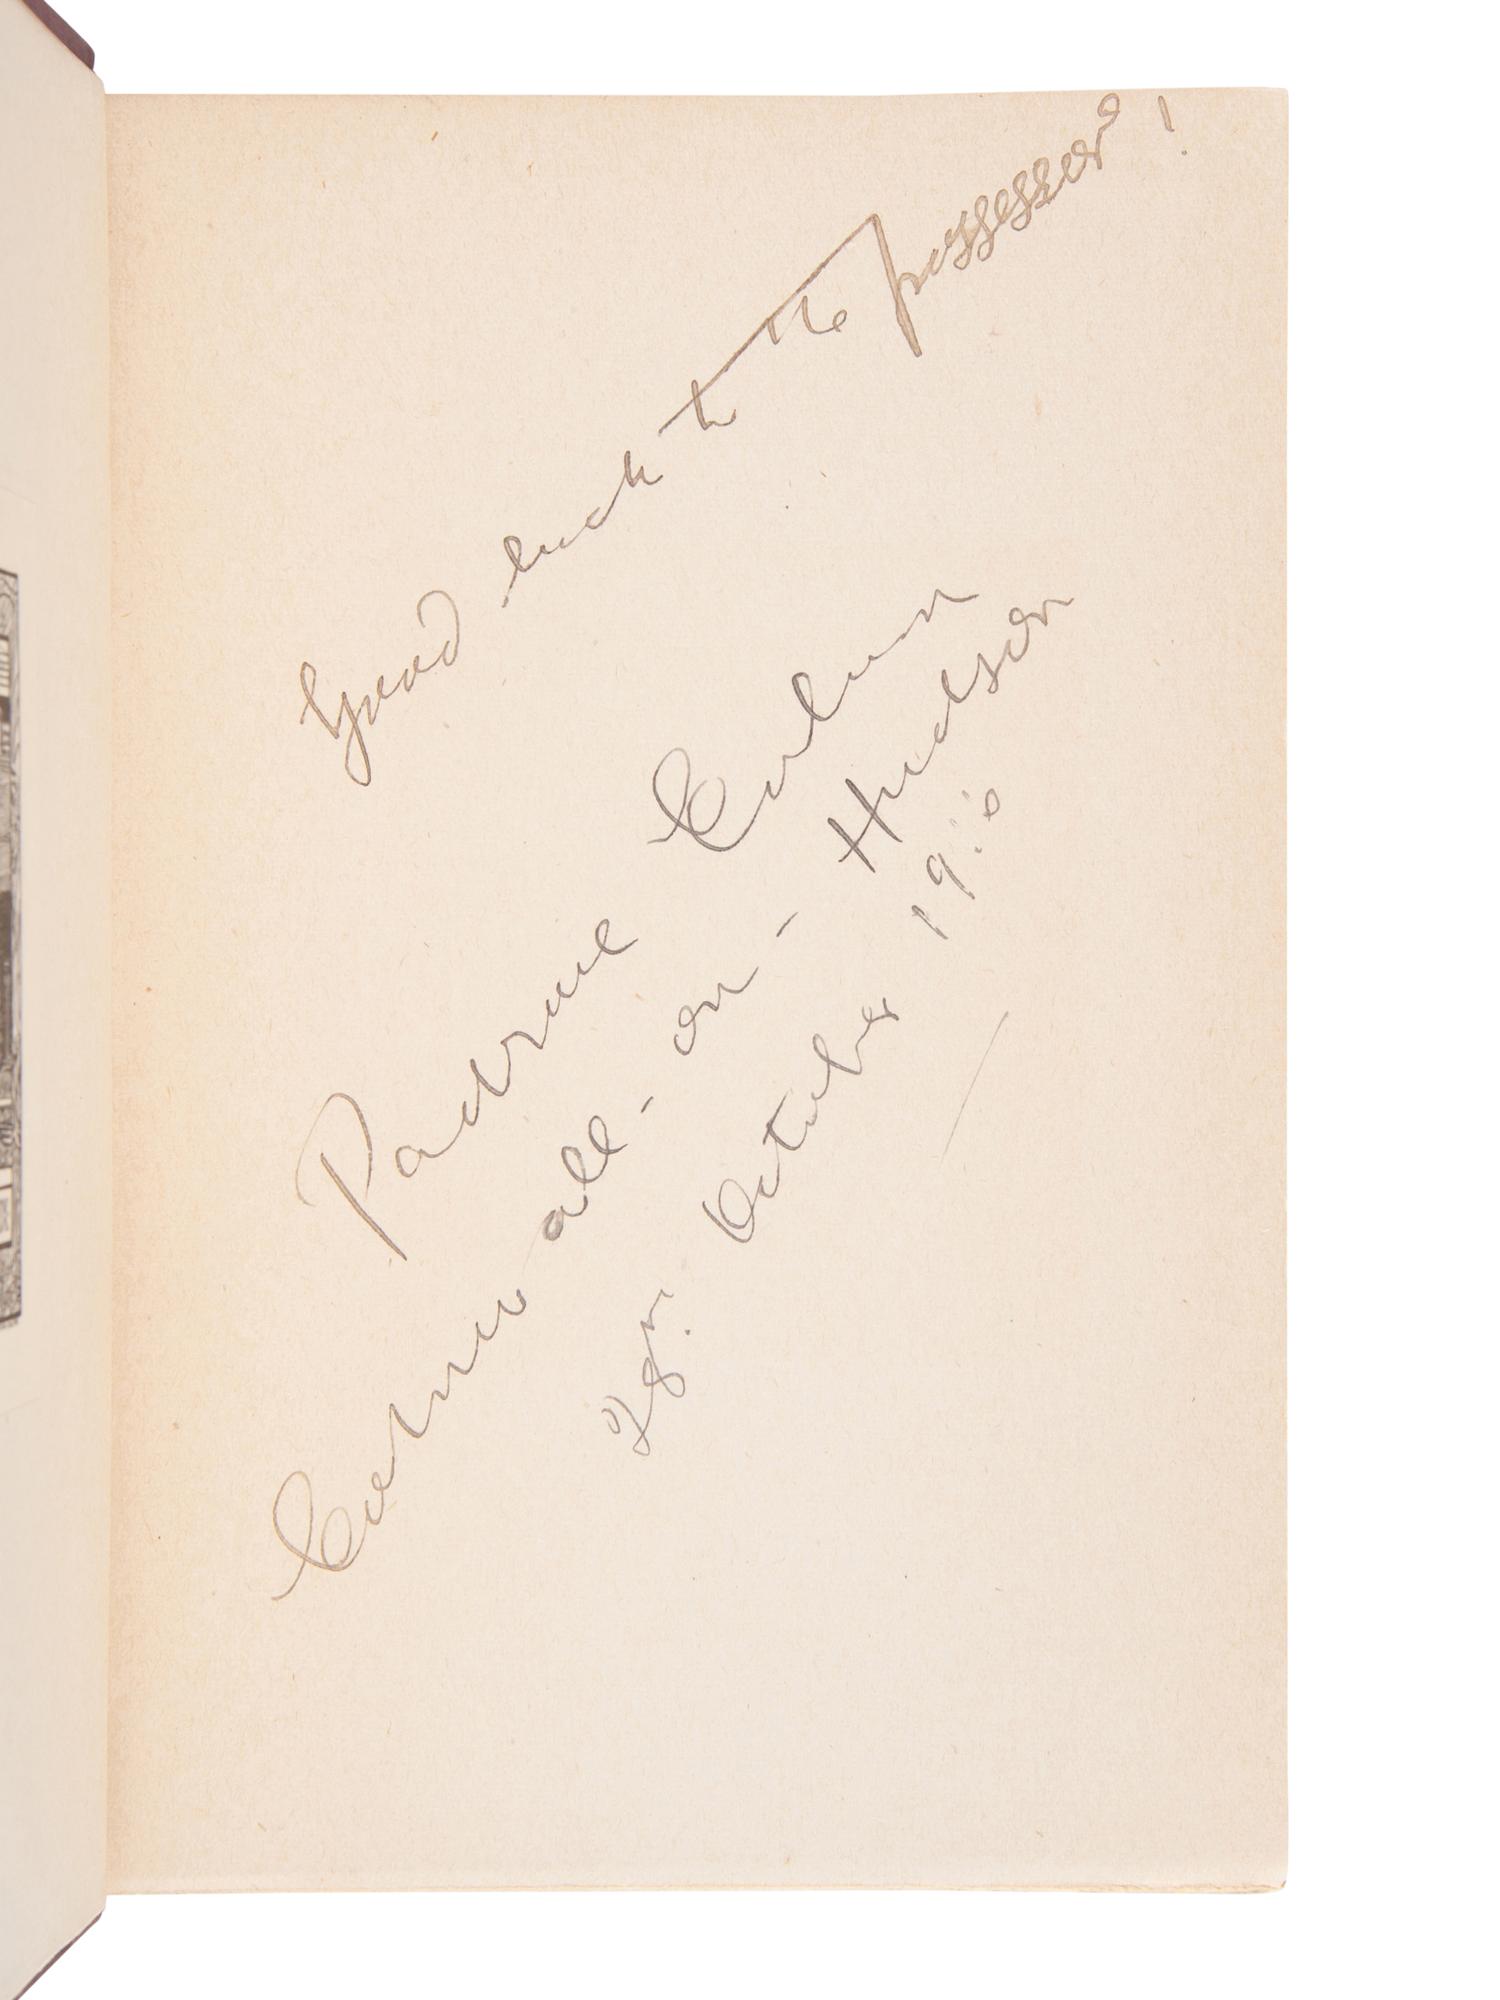 Good luck to the possessor!
Padraic Colum
Cornwall-on-Hudson
October